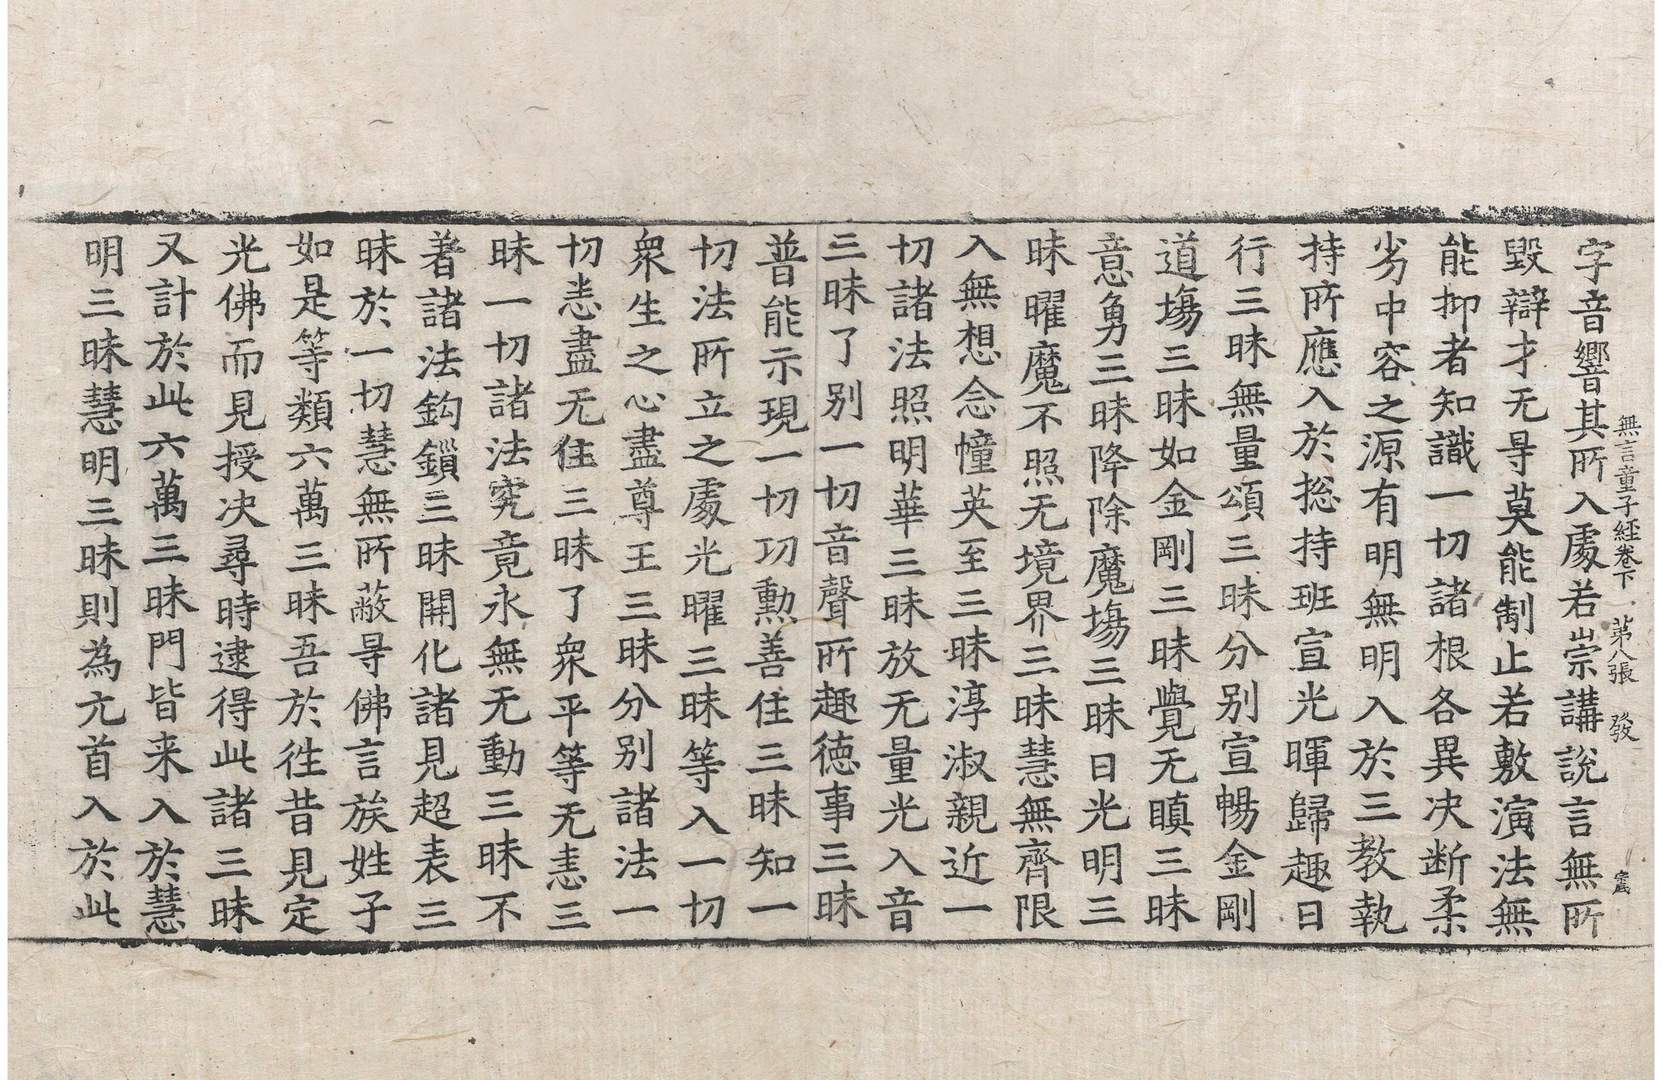 無言童子經卷下 第八張 發
字音響其所入處若崇講說言無所
毀辯才无㝵莫能制止若敷演法無
能抑者知識一切諸根各異决断柔
劣中容之源有明無明入於三教執
持所應入於捴持班宣光暉歸趣日
行三昧無量頌三昧分别宣暢金剛
道塲三昧如金剛三昧覺无瞋三昧
意勇三昧降除魔塲三昧日光明三
昧曜魔不照无境界三昧慧無齊限
入無想念幢英至三昧淳淑親近一
切諸法照明華三昧放无量光入音
三昧了别一切音聲所趣徳事三昧
普能示現一切功勲善住三昧知一
切法所立之處光曜三昧等入一切
衆生之心盡尊王三昧分别諸法一
切恚盡无住三昧了衆平等无恚三
昧一切諸法究竟永無无動三昧不
著諸法鈎鎻三昧開化諸見超表三
昧於一切慧無所蔽㝵佛言族姓子
如是等類六萬三昧吾於徃昔見定
光佛而見授决尋時逮得此諸三昧
又計於此六萬三昧門皆来入於慧
明三昧慧明三昧則為亢首入於此